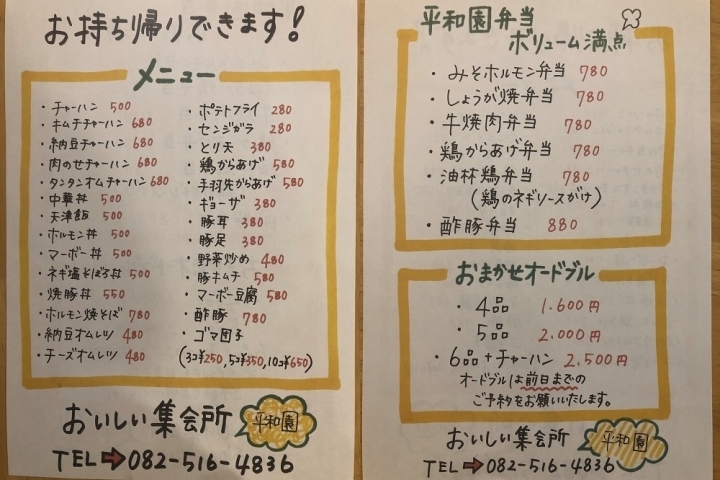 お持ち帰りできます!
メニュー
・チャーハン 500
・キムチチャーハン 680
・納豆チャーハン 680
・肉のせチャーハン 680
・タンタンオムチャーハン 680
・中華丼 500
・天津飯 500
・ホルモン丼 500
・マーボー丼 500
・ネギ塩そぼろ丼 500
・焼豚丼 550
・ホルモン焼そば 780
・納豆オムレツ 480
・チーズオムレツ 480
・ポテトフライ 280
・センジガラ 280
・とり天 380
・鶏からあげ 580
・手羽先からあげ 580
・ギョーザ 380
・豚耳 380
・豚足 380
・野菜炒め 480
・豚キムチ 580
・マーボー豆腐 580
・酢豚 780
・ゴマ団子
(3コ¥250,5コ¥350,10コ¥650)
おいしい集会所 平和園
TEL➡082-516-4836
平和園弁当
ボリューム満点
・みそホルモン弁当 780
・しょうが焼弁当 780
・牛焼肉弁当 780
・鶏からあげ弁当 780
・油林鶏弁当 780
(鶏のネギソースがけ)
・酢豚弁当 880
おまかせオードブル
・4品 1.600円
・5品 2.000円
・6品+チャーハン 2.500円
オードブルは前日までの
ご予約をお願いいたします。
おいしい集会所 平和園
TEL➡082-516-4836